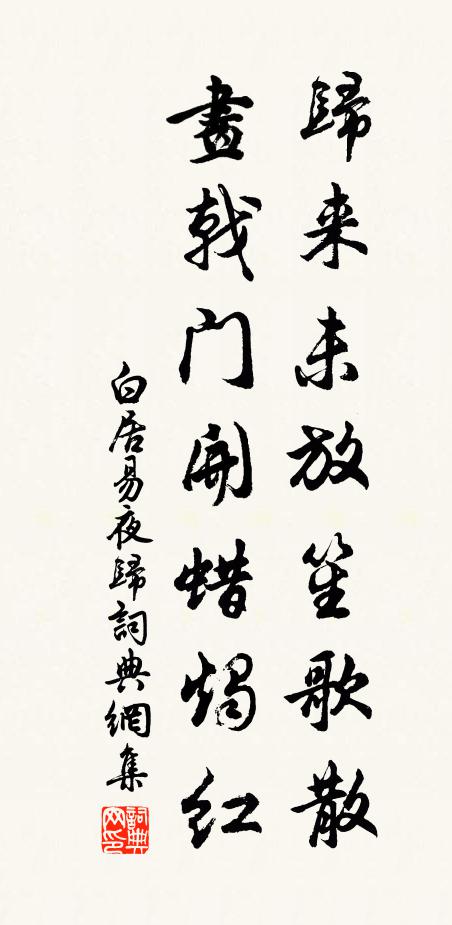 歸来未放笙歌散
畫戟门開蜡燭红
白居易夜歸詞典網集
詞典网印